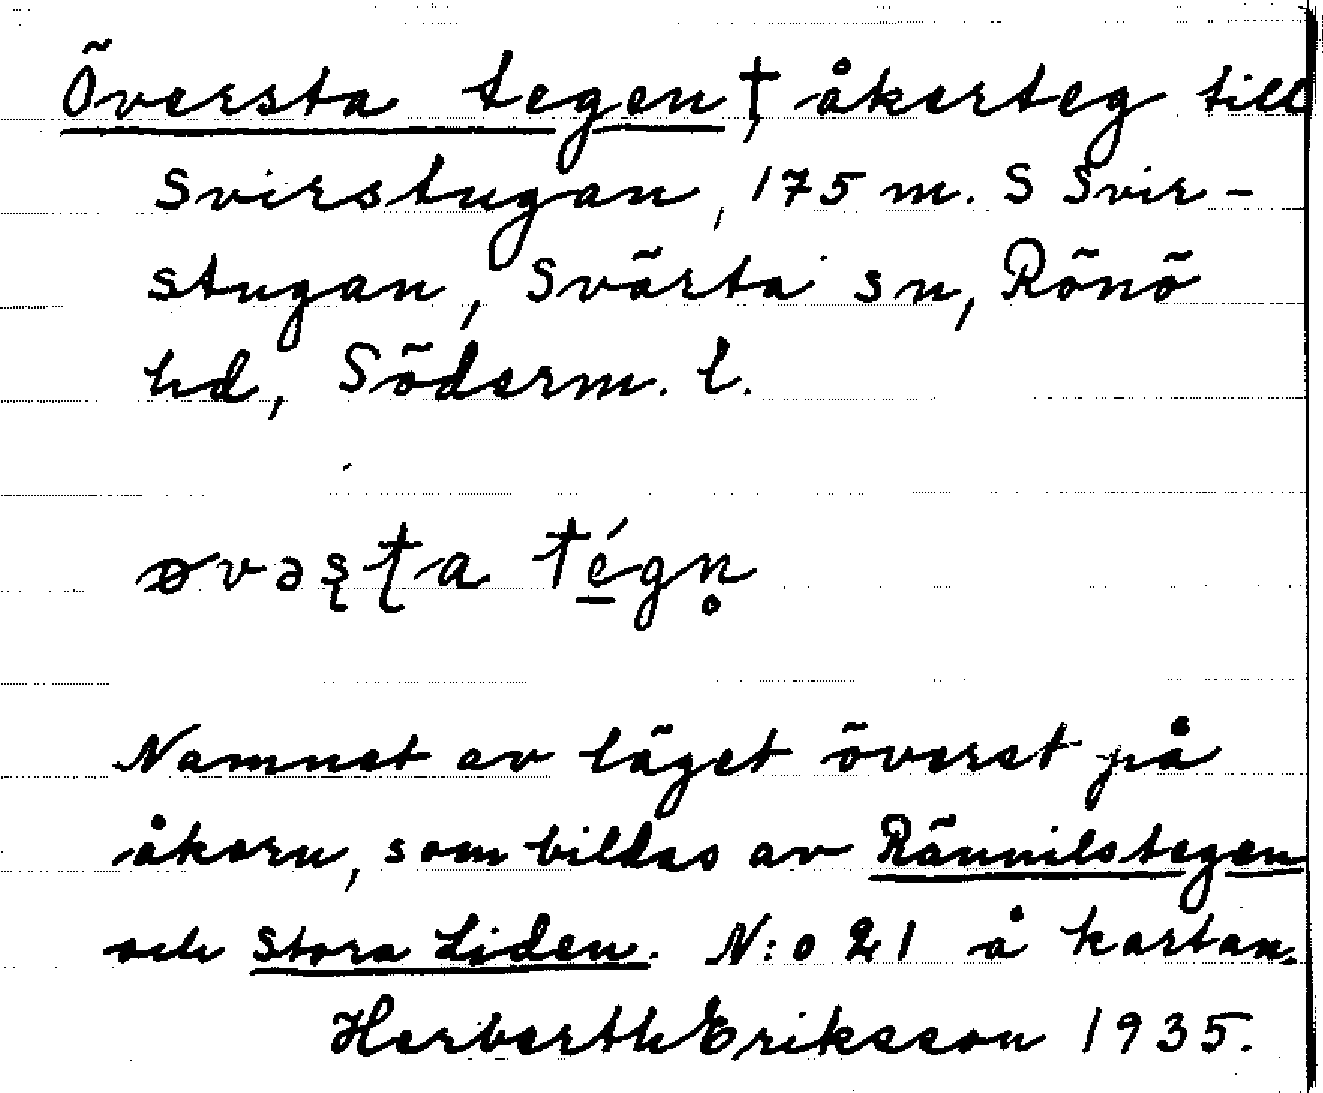 Översta tegen †, åkerteg till
Svirstugan, 175 m. S Svir-
stugan, Svärta sn, Rönö
hd, Söderm. l.
øvəʂʈa tégn̥
Namnet av läget överst på
åkern, som bildas av Rännilstegen
och Stora Liden. N:o 21 å kartan.
Herberth Eriksson 1935.